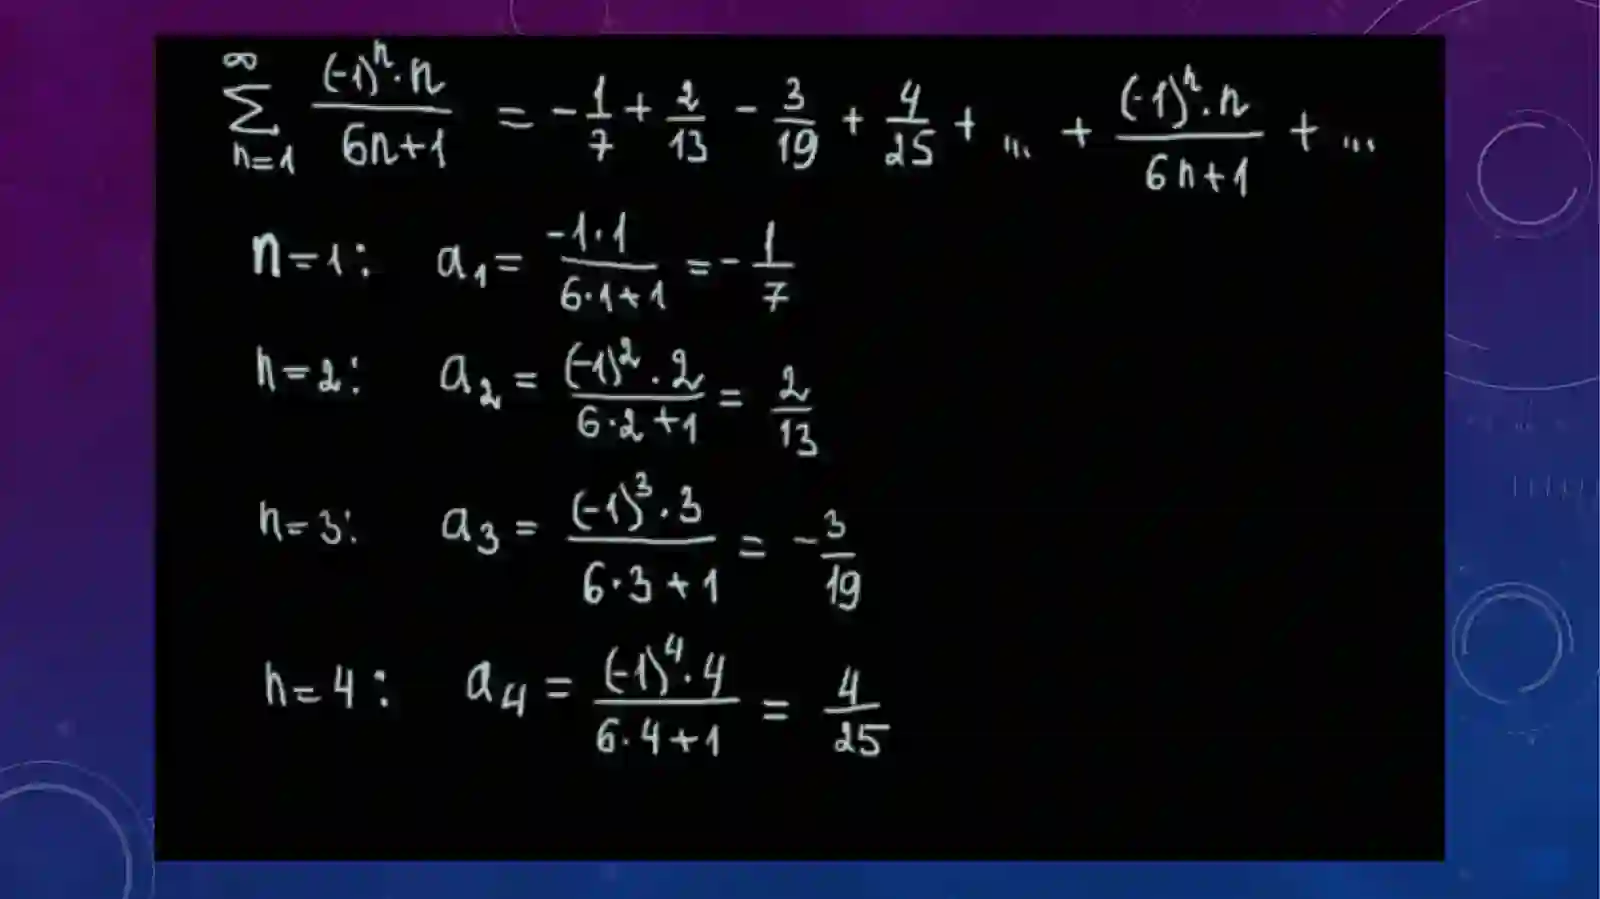 ∞∑n=1 (-1)^n·n/6n+1 = -1/7 + 2/13 - 3/19 + 4/25 + ... + (-1)^n·n/6n+1 + ...
n=1: a₁= -1·1/6·1+1 =-1/7
n=2: a₂ = (-1)²·2/6·2+1 = 2/13
n=3: a₃ = (-1)³·3/6·3+1 = -3/19
n=4: a₄ = (-1)⁴·4/6·4+1 = 4/25